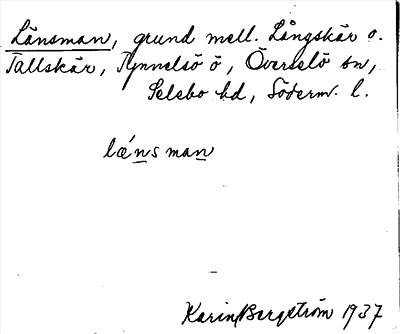 Länsman, grund mell. Långskär o.
Tallskär, Tynnelsö ö, Överselö sn,
Selebo hd, Söderm. l.
lǽnsman
Karin Bergström 1937